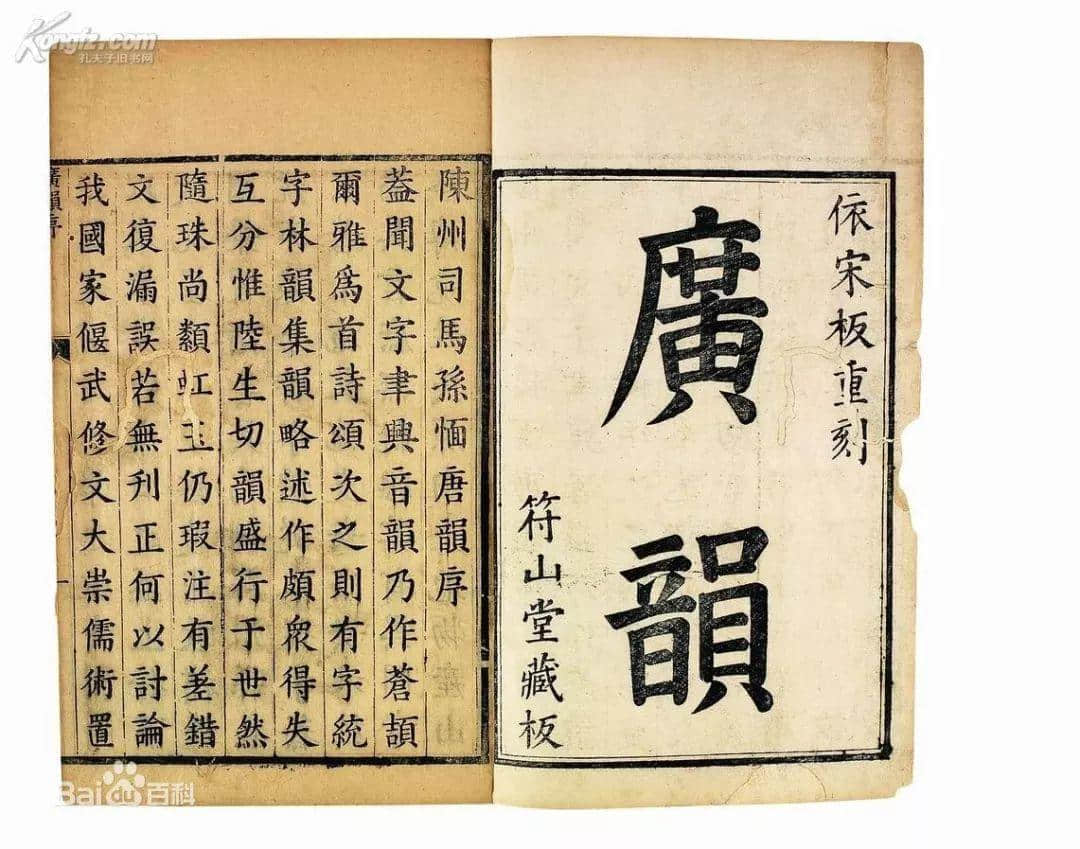 依宋板重刻
廣韻
符山堂藏板
陳州司馬孫愐唐韻序
葢聞文字聿興音韻乃作蒼頡
爾雅爲首詩頌次之則有字統
字林韻集韻略述作頗衆得失
互分惟陸生切韻盛行于世然
隨珠尚纇虹玉仍瑕注有差錯
文復漏誤若無刊正何以討論
我國家偃武修文大崇儒術置
廣韻序
一
Kongfz.com
孔夫子旧书网
Bai du 百科